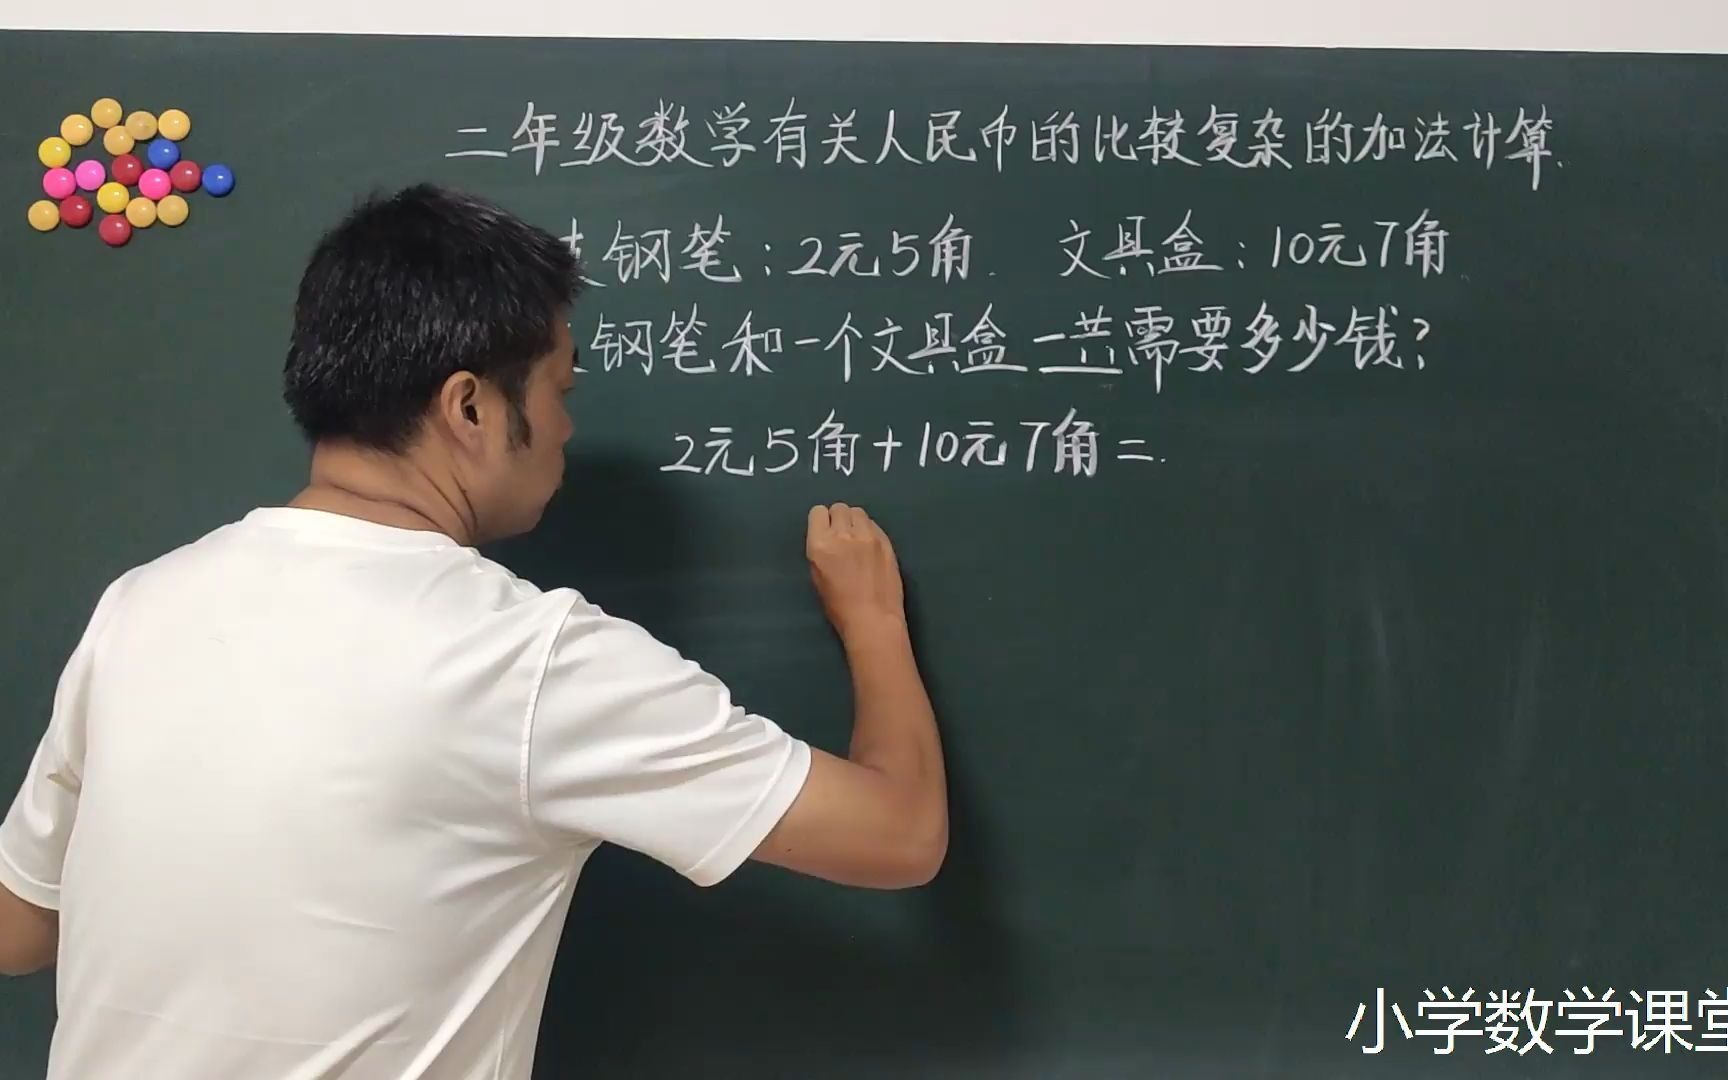 二年级数学有关人民币的比较复杂的加法计算.
钢笔:2元5角. 文具盒:10元7角
钢笔和一个文具盒一共需要多少钱?
2元5角+10元7角=.
小学数学课堂